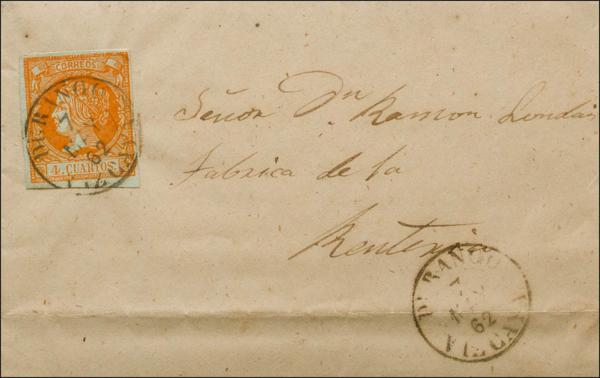 CORREOS
4 CUARTOS
DURANGO
62
VIZCAYA
Señor Dn Ramon
Fabrica de la
Renteria
DURANGO
7
62
VIZCAYA